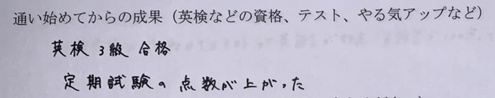 通い始めてからの成果（英検などの資格、テスト、やる気アップなど）
英検3級合格
定期試験の点数が上がった